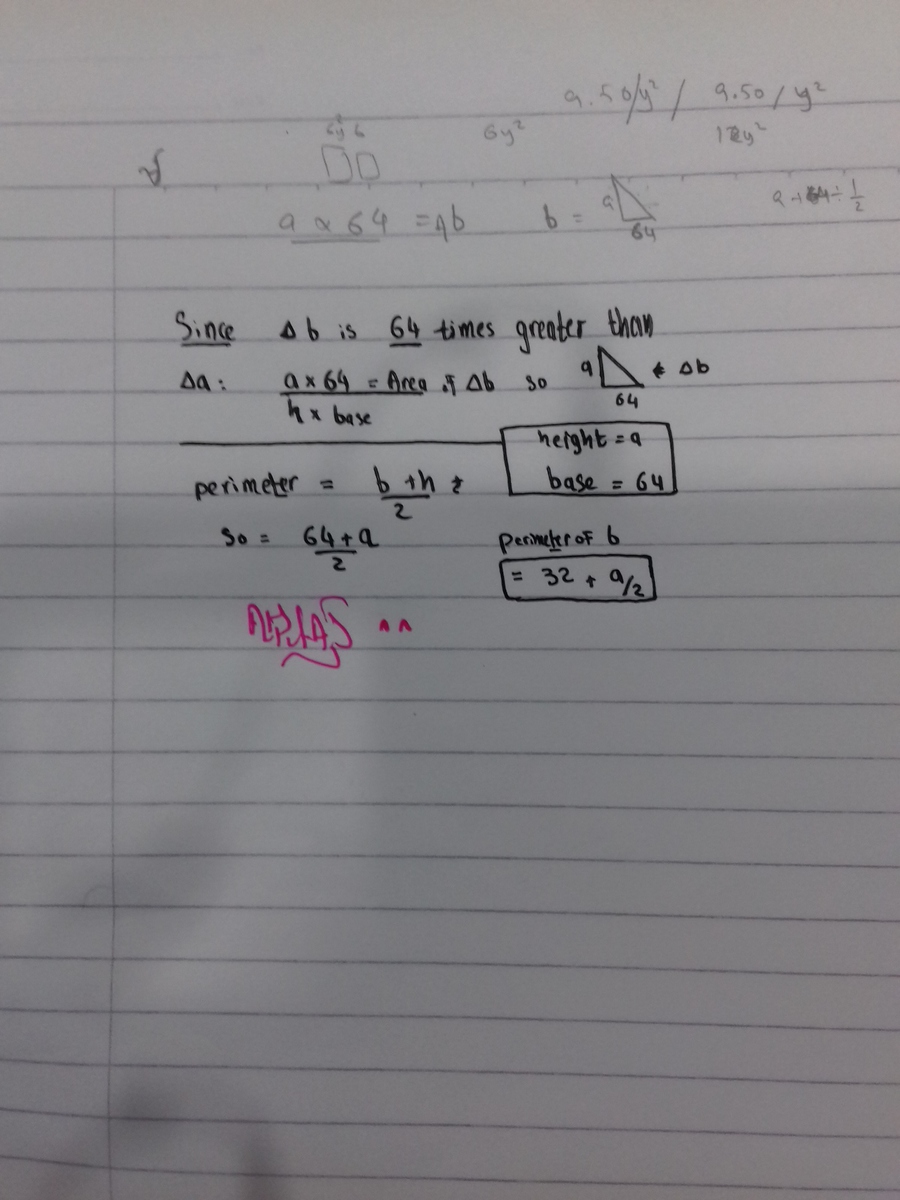 9.50/y² / 9.50/y²
6y² 12y²
a × 64 = Δb b = a 64
Since Δb is 64 times greater than
Δa: a×64 = Area of Δb so a 64 Δb
h × base
height = a
base = 64
perimeter = b+h/2
so = 64+a/2
perimeter of b
= 32 + a/2
^^